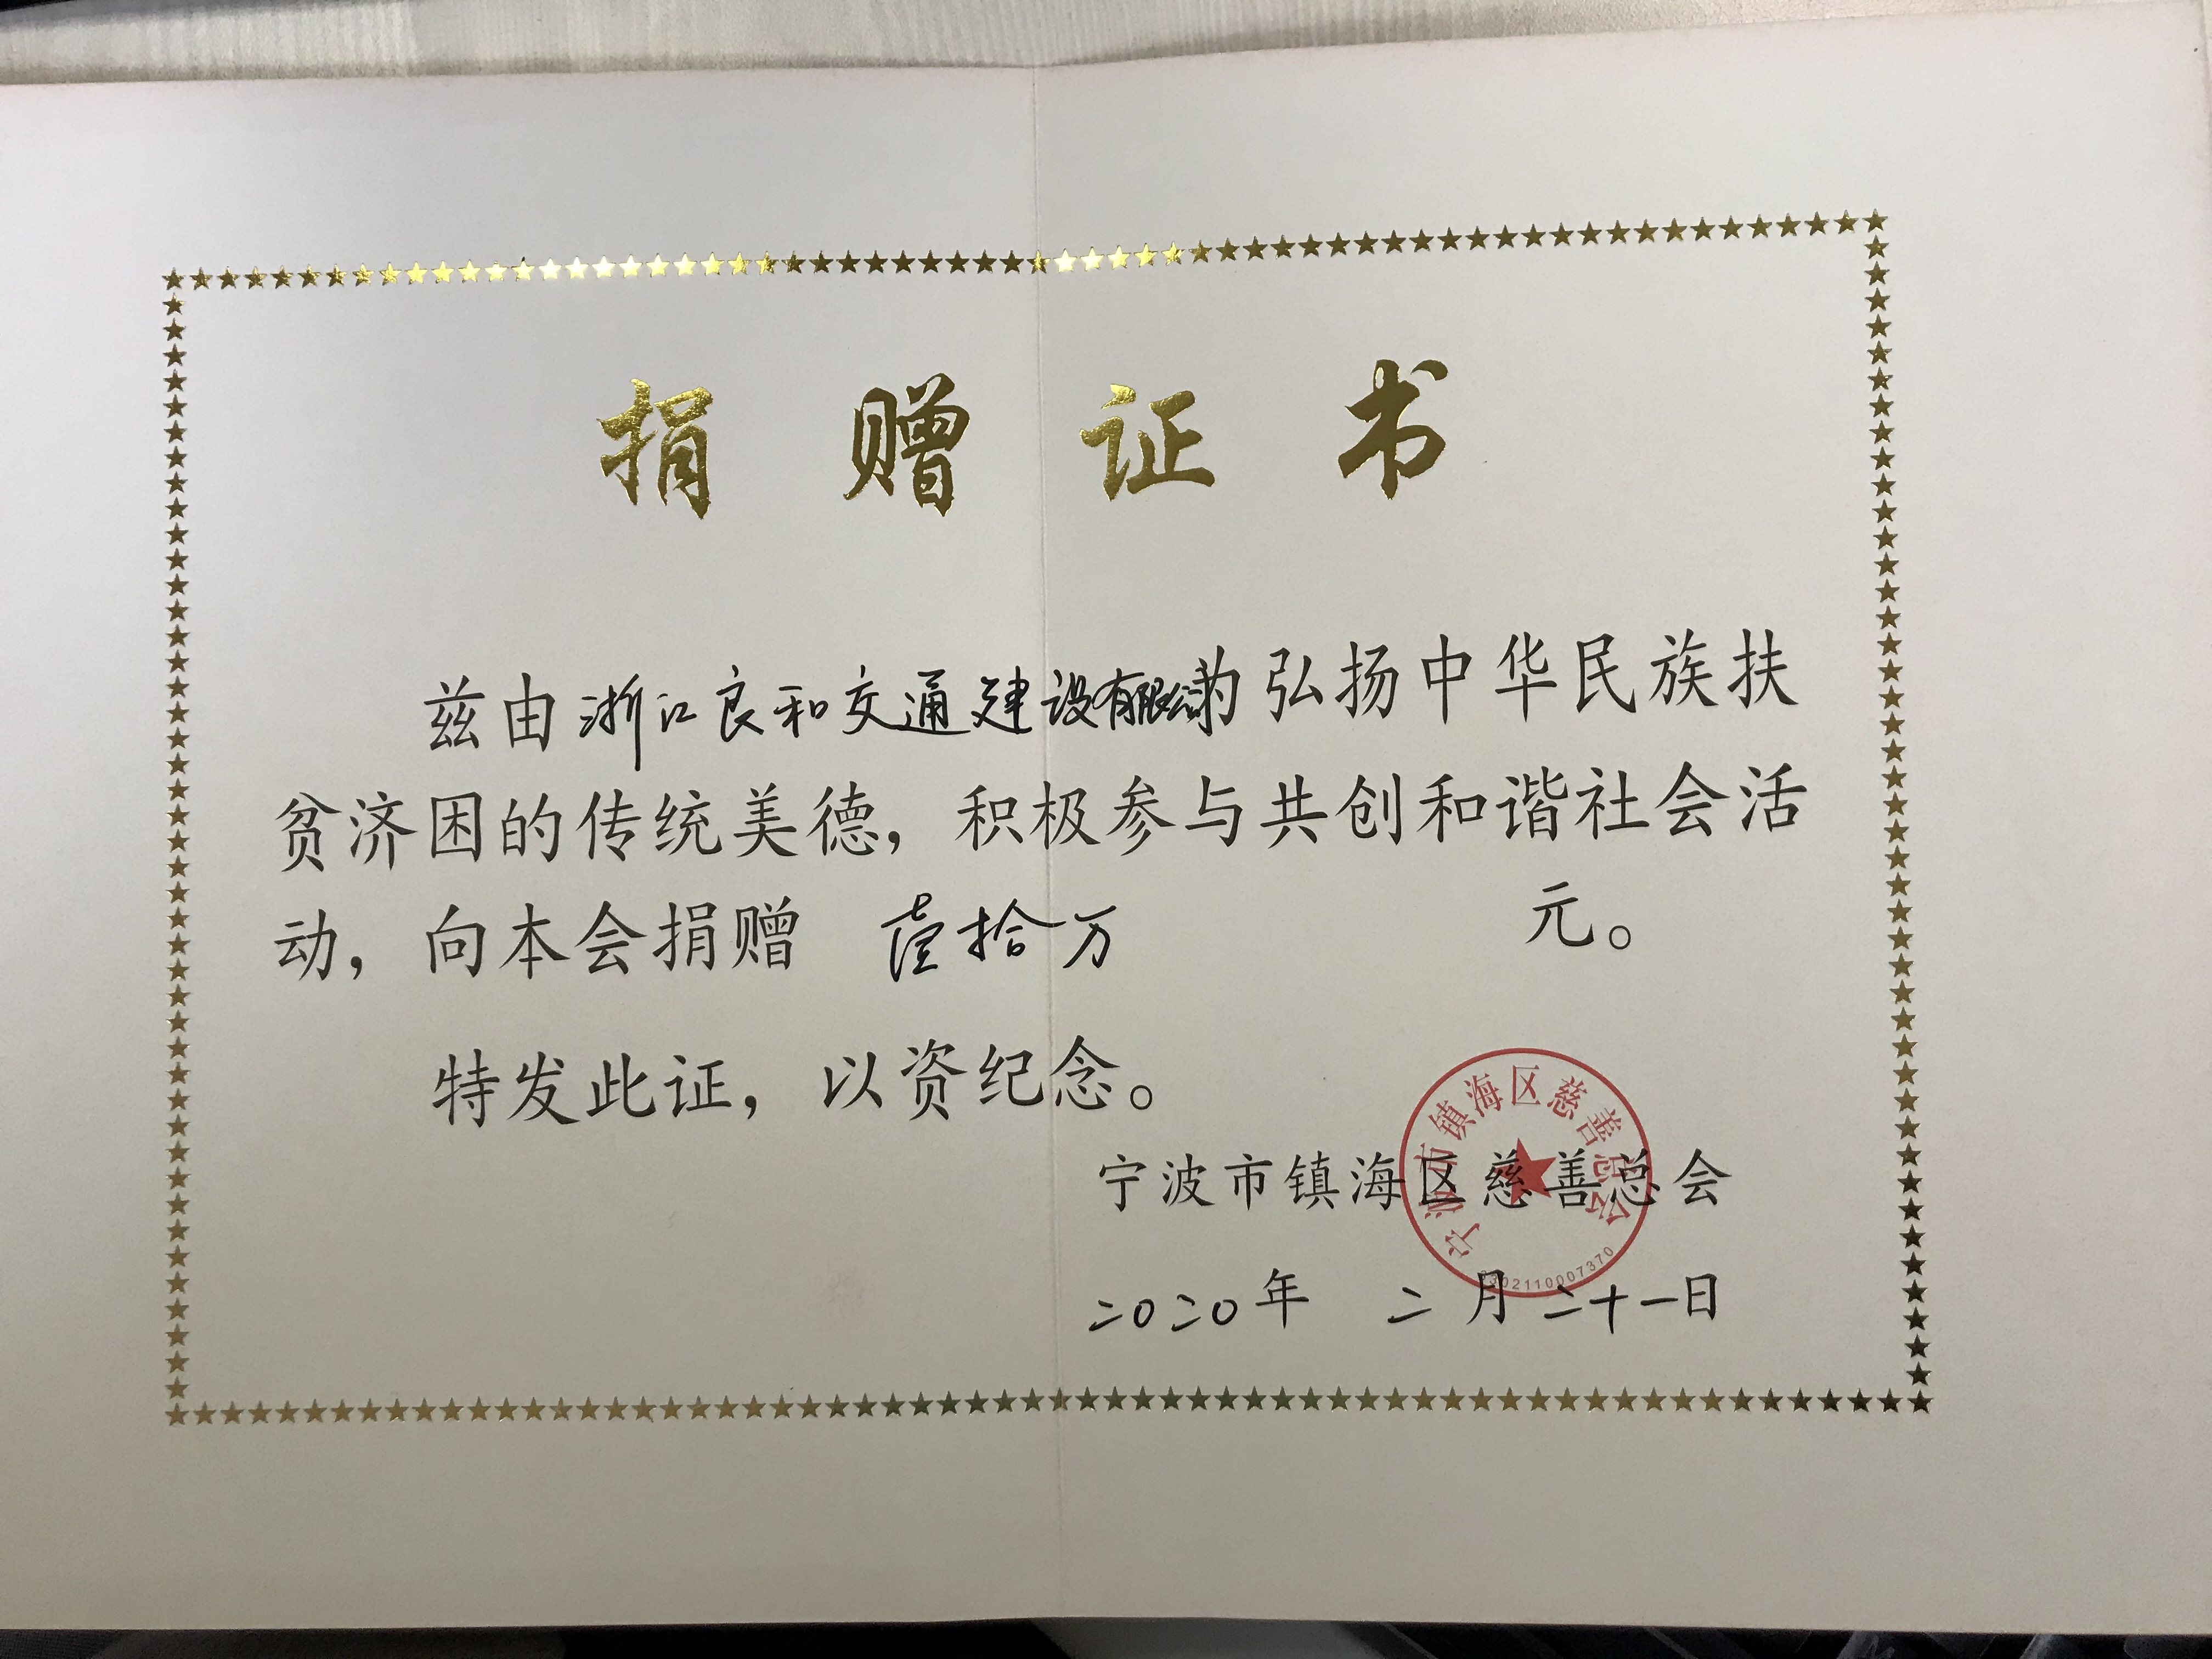 捐赠证书
兹由浙江良和交通建设有限公司为弘扬中华民族扶
贫济困的传统美德，积极参与共创和谐社会活
动，向本会捐赠 壹拾万 元。
特发此证，以资纪念。
宁波市镇海区慈善总会
二0二0年 二月二十一日
宁波市镇海区慈善总会
3302110007370